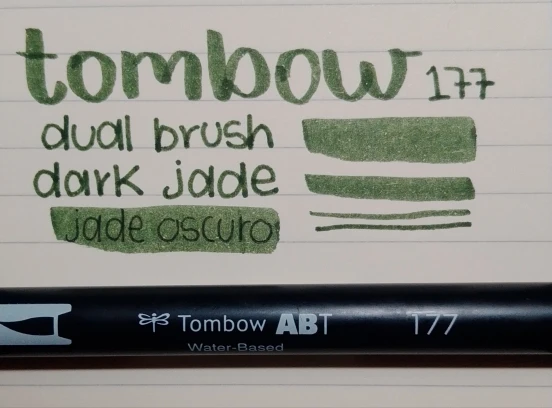 tombow 177
dual brush
dark jade
jade oscuro
Tombow ABT 177
Water-Based